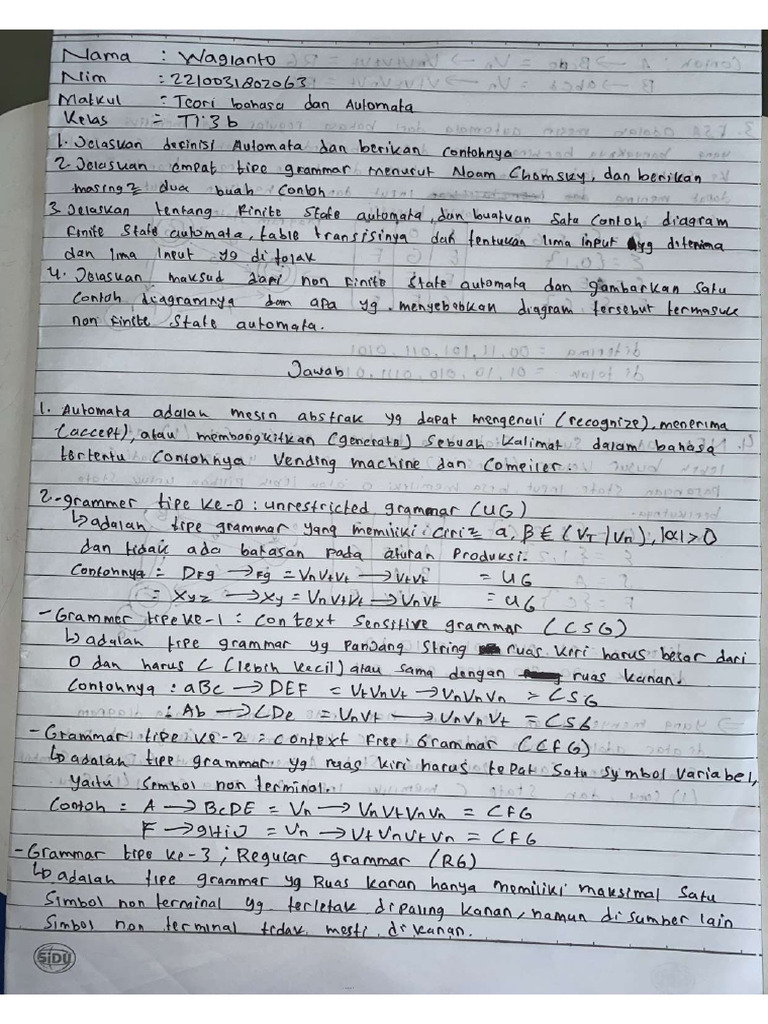 Nama : Wagianto
Nim : 2210031802063
Matkul : Teori bahasa dan Automata
Kelas = TI.3b
1. Jelaskan definisi Automata dan berikan contohnya
2. Jelaskan empat tipe grammar menurut Noam Chomsky, dan berikan
masing2 dua buah contoh
3. Jelaskan tentang finite state automata, dan buatkan satu contoh diagram
finite state automata, table transisinya dan tentukan lima input yg diterima
dan lima input yg ditolak
4. Jelaskan maksud dari non finite state automata dan gambarkan satu
contoh diagramnya dan apa yg menyebabkan diagram tersebut termasuk
non finite state automata.
Jawab
1. Automata adalah mesin abstrak yg dapat mengenali (recognize), menerima
(accept), atau membangkitkan (generate) sebuah kalimat dalam bahasa
tertentu contohnya Vending machine dan Compiler.
2.- grammer tipe ke-0 : unrestricted grammar (UG)
↳ adalah tipe grammar yang memiliki ciri2 α, β ∈ (VT | VN), |α| > 0
dan tidak ada batasan pada aturan produksi.
Contohnya = DFg → Fg = VnVtVt → VtVt = UG
= Xyz → Xy = VnVtVt → VnVt = UG
- Grammer tipe ke-1 : Context Sensitive grammar (CSG)
↳ adalah tipe grammar yg panjang string ruas kiri harus besar dari
0 dan harus < (lebih kecil) atau sama dengan ruas kanan.
Contohnya : aBc → DEF = VtVnVt → VnVnVn = CSG
: Ab → CDe = VnVt → VnVnVt = CSG
- Grammar tipe ke-2 = Context Free Grammar (CFG)
↳ adalah tipe grammar yg ruas kiri harus tepat satu symbol variabel,
yaitu simbol non terminal.
Contoh = A → BcDE = Vn → VnVtVnVn = CFG
F → gHiJ = Vn → VtVnVtVn = CFG
- Grammar tipe ke-3 ; Regular grammar (RG)
↳ adalah tipe grammar yg Ruas kanan hanya memiliki maksimal satu
simbol non terminal yg terletak di paling kanan, namun di sumber lain
simbol non terminal tidak mesti di kanan.
SiDU